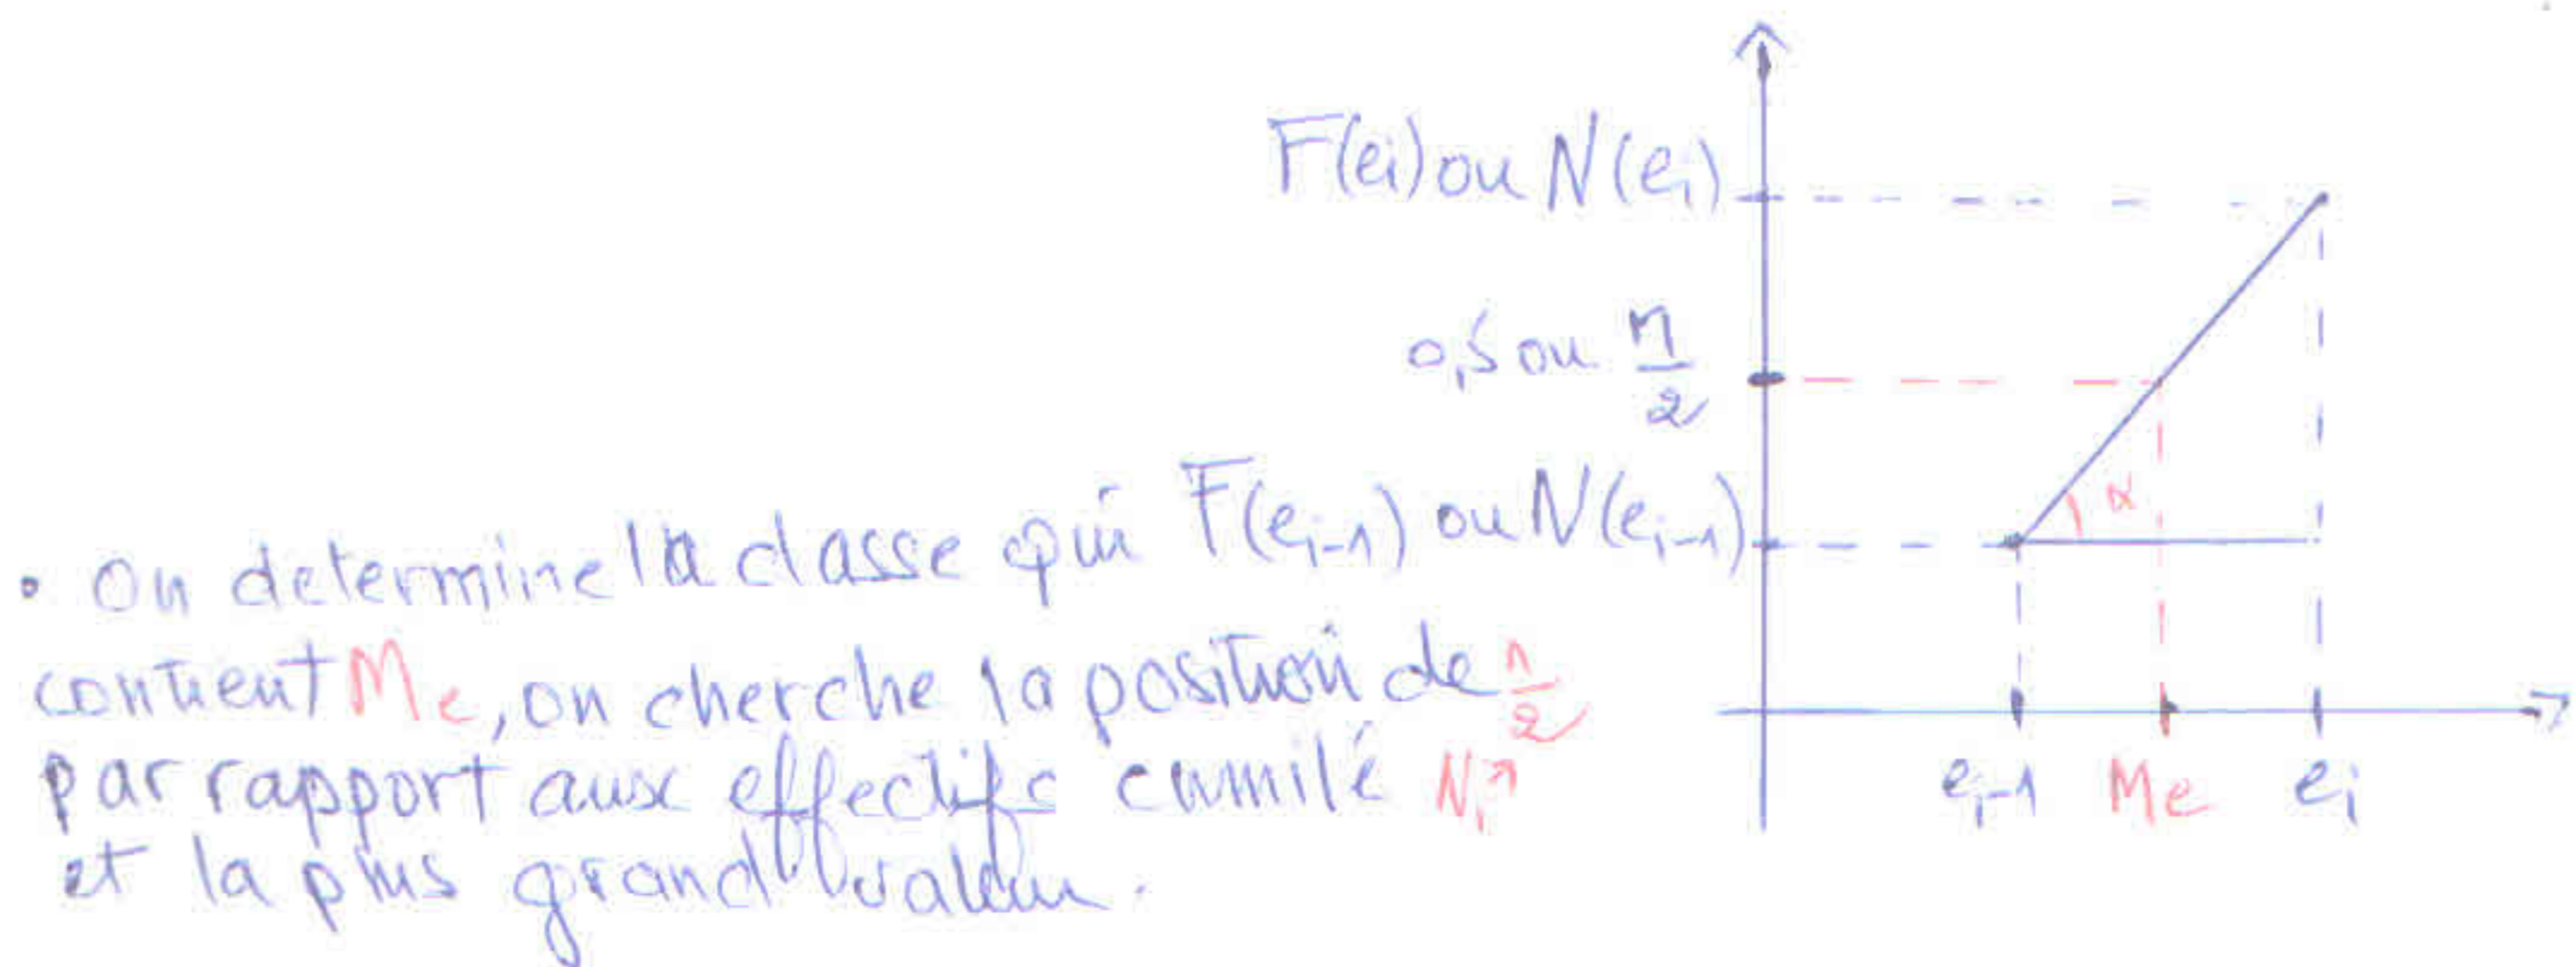 F(ei) ou N(ei)
0,5 ou n/2
F(ei-1) ou N(ei-1)
• On determine la classe qui
contient Me, on cherche la position de n/2
par rapport aux effectifs cumilé Ni↗
et la plus grand valeur.
α
ei-1 Me ei